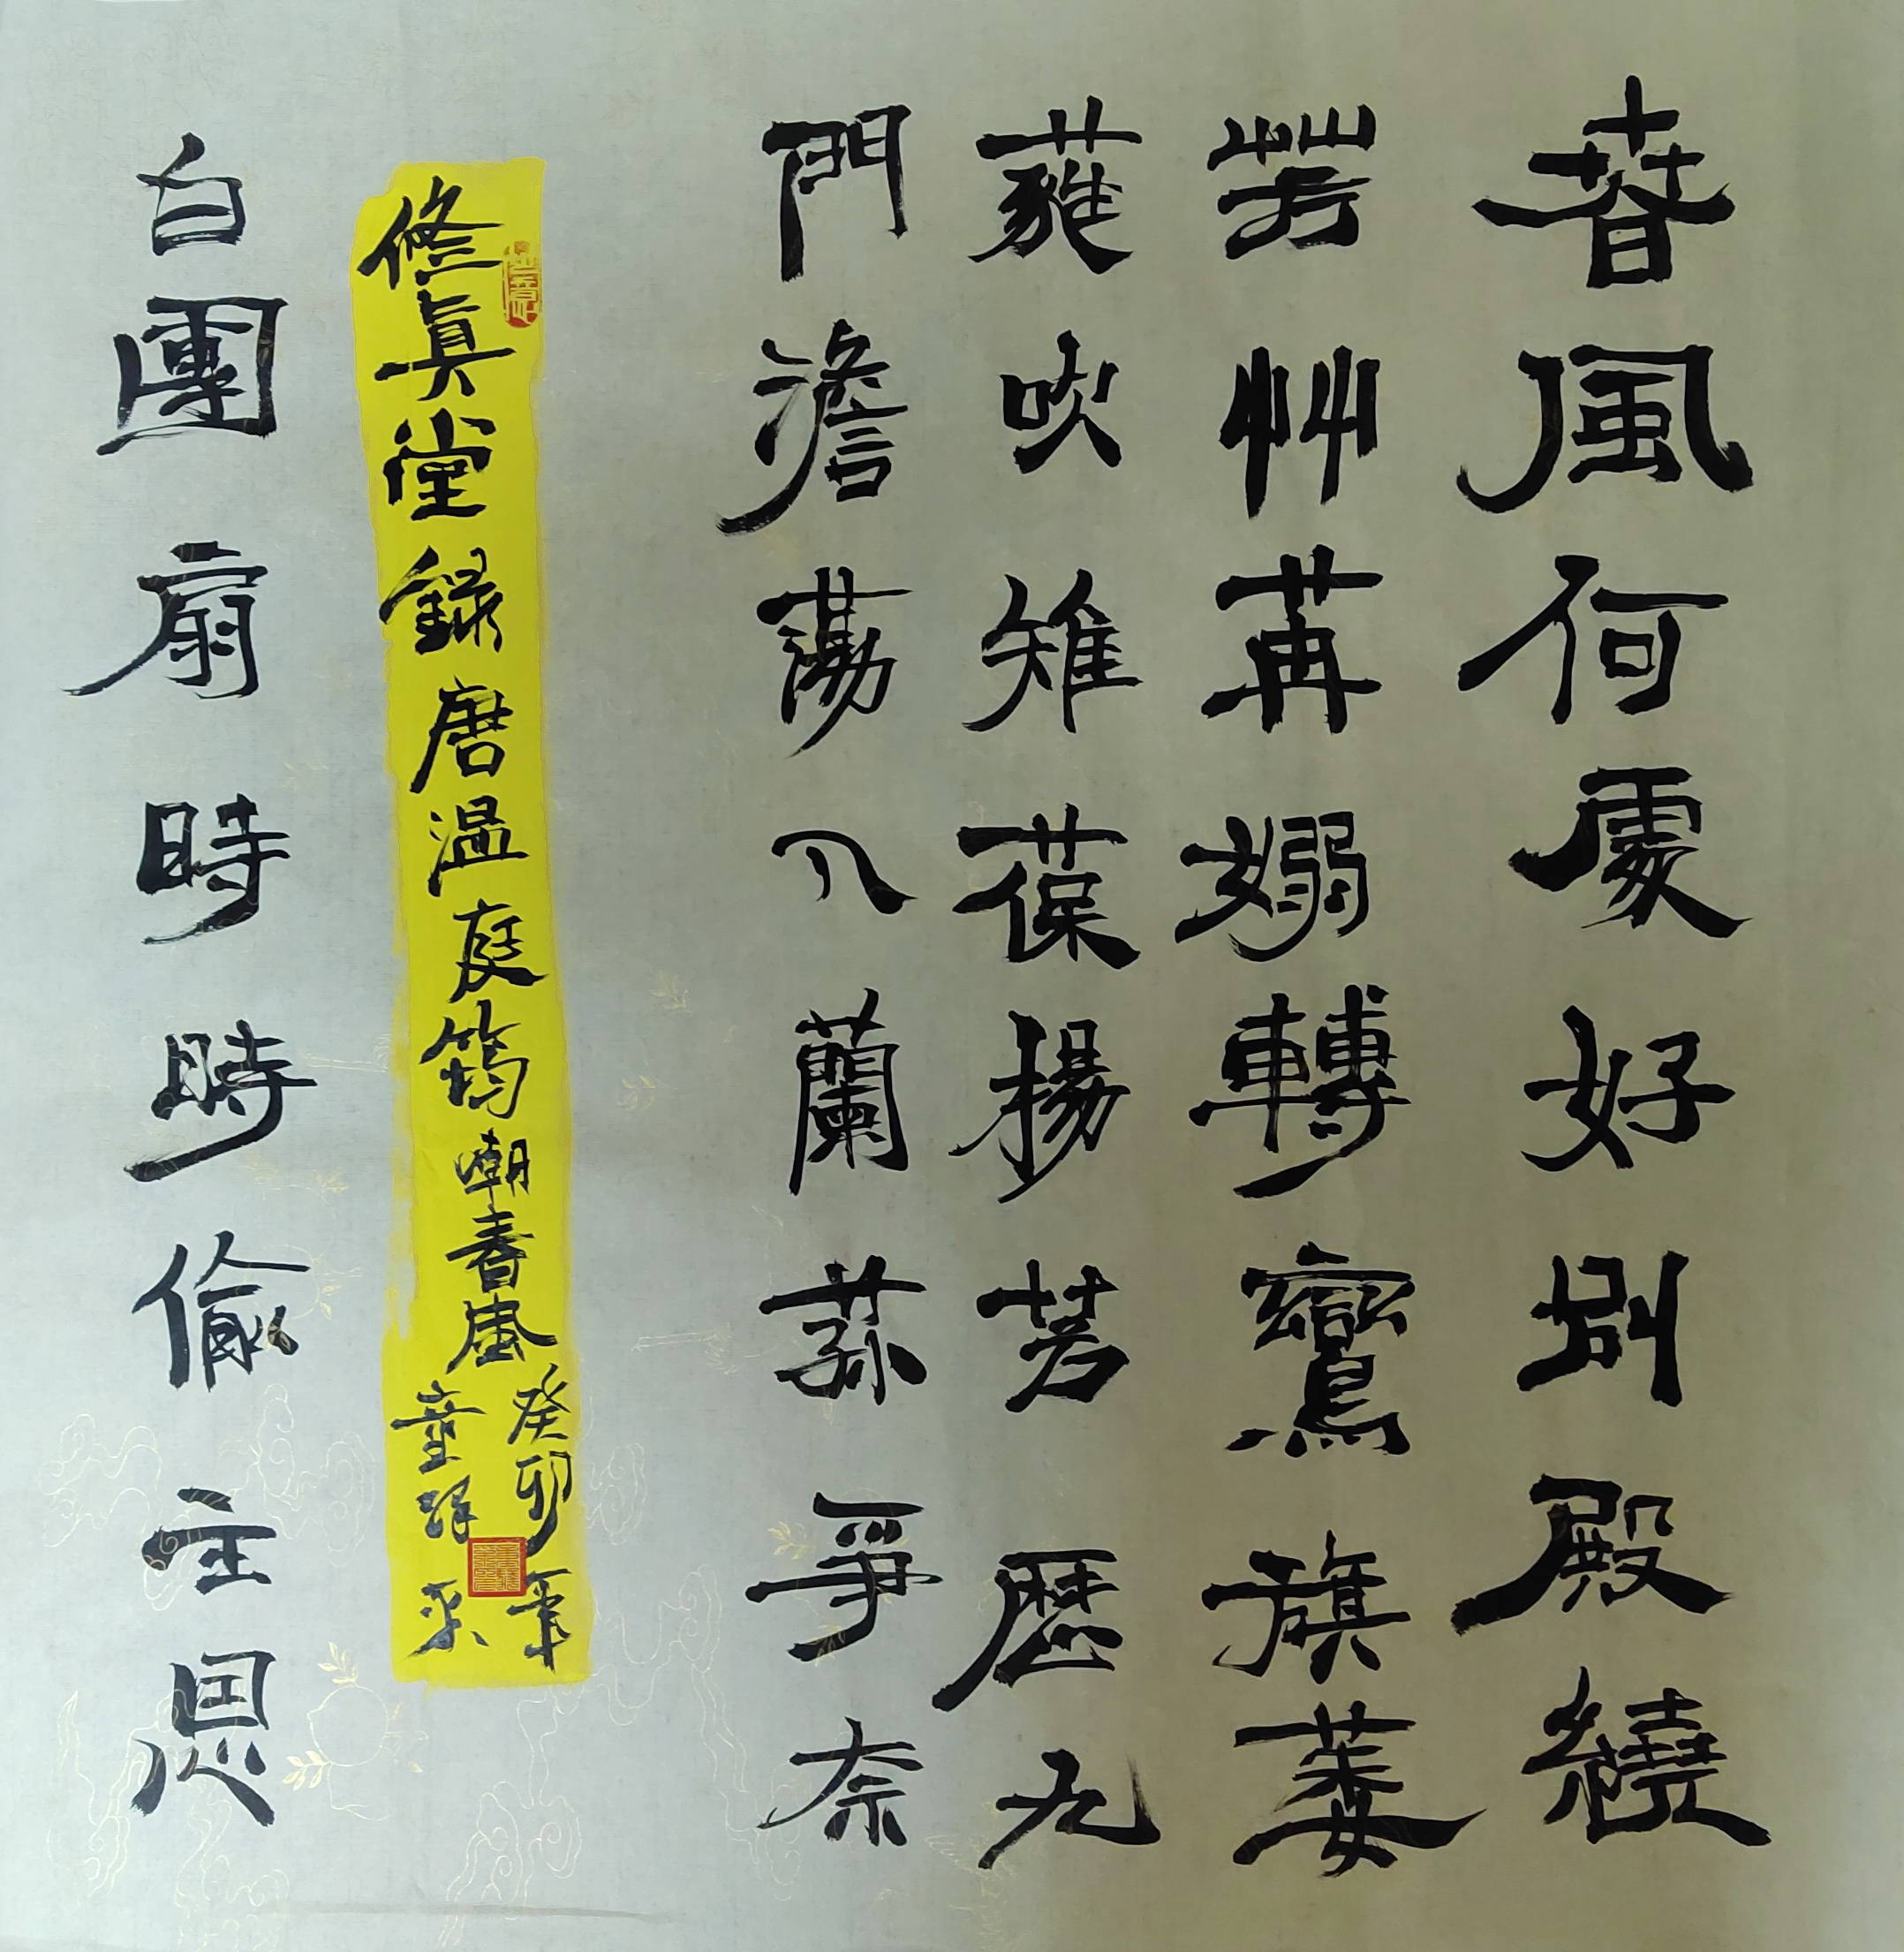 春風何處好別殿繞
芳艸苒嫋轉鸞旗萎
蕤吹雉葆揚芳歷九
門澹蕩入蘭蓀爭奈
修真堂錄唐温庭筠嘲春風
癸卯年
白團扇時時偷主恩